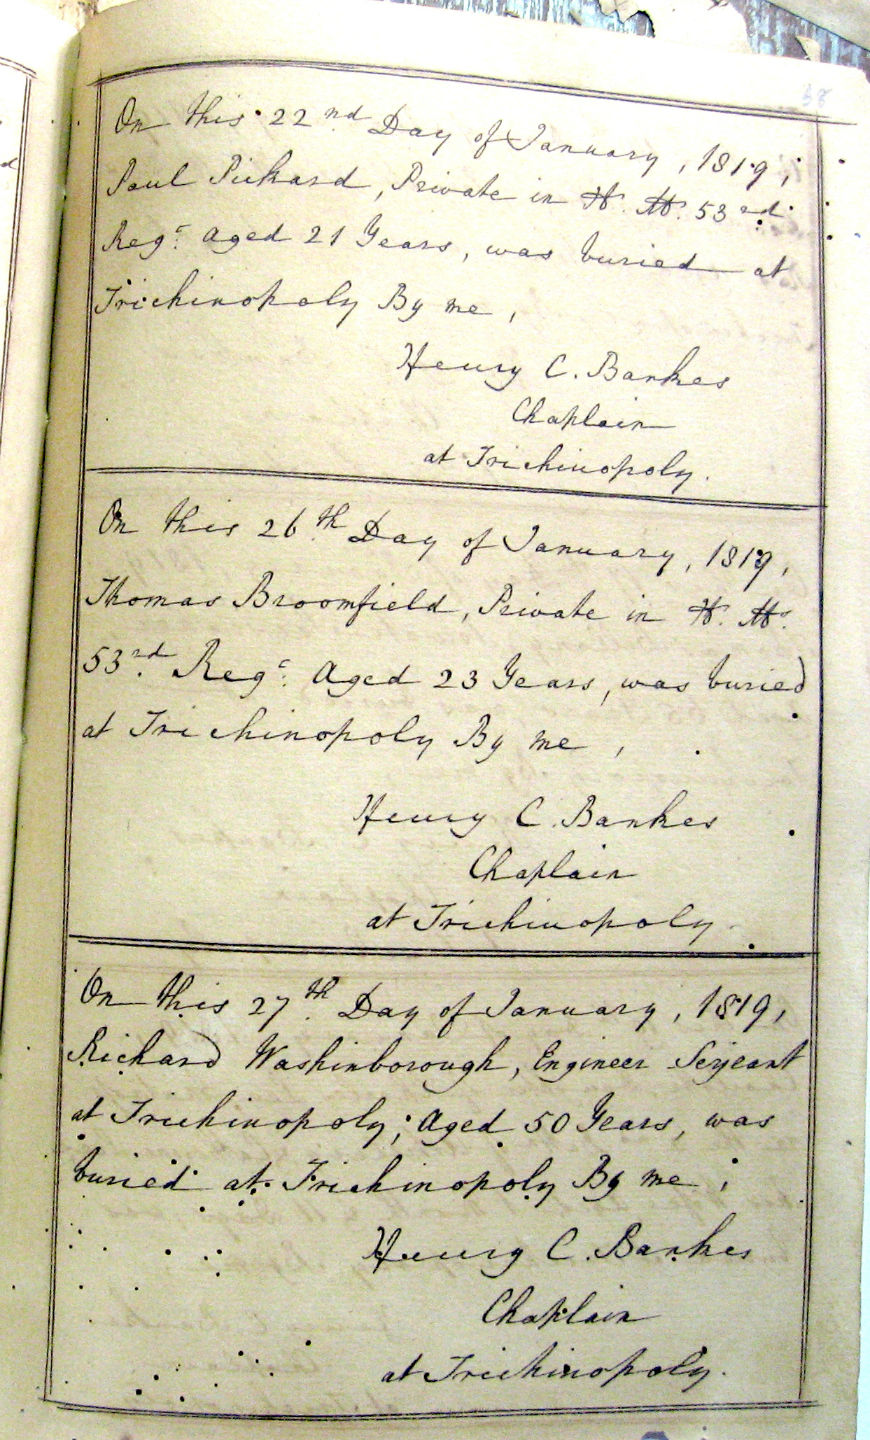 On this 22nd Day of January, 1819,
Paul Pickard, Private in H. M. 53rd
Regt. aged 21 Years, was buried at
Trichinopoly By me,
Henry C. Bankes
Chaplain
at Trichinopoly.
On this 26th Day of January, 1819,
Thomas Broomfield, Private in H. Ms.
53rd. Regt. Aged 23 Years, was buried
at Trichinopoly By me,
Henry C. Bankes
Chaplain
at Trichinopoly.
On this 27th. Day of January, 1819,
Richard Washinborough, Engineer Serjeant
at Trichinopoly; Aged 50 Years, was
buried at Trichinopoly By me;
Henry C. Bankes
Chaplain
at Trichinopoly.